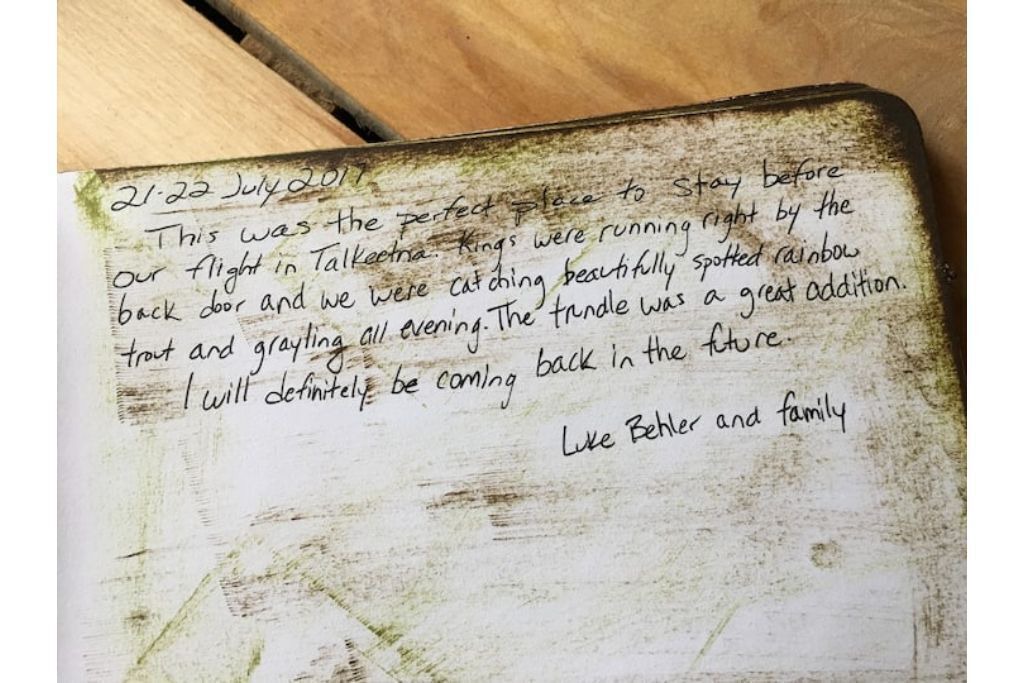 21-22 July 2017
This was the perfect place to stay before
our flight in Talkeetna. Kings were running right by the
back door and we were catching beautifully spotted rainbow
trout and grayling all evening. The trundle was a great addition.
I will definitely be coming back in the future.
Luke Behler and family